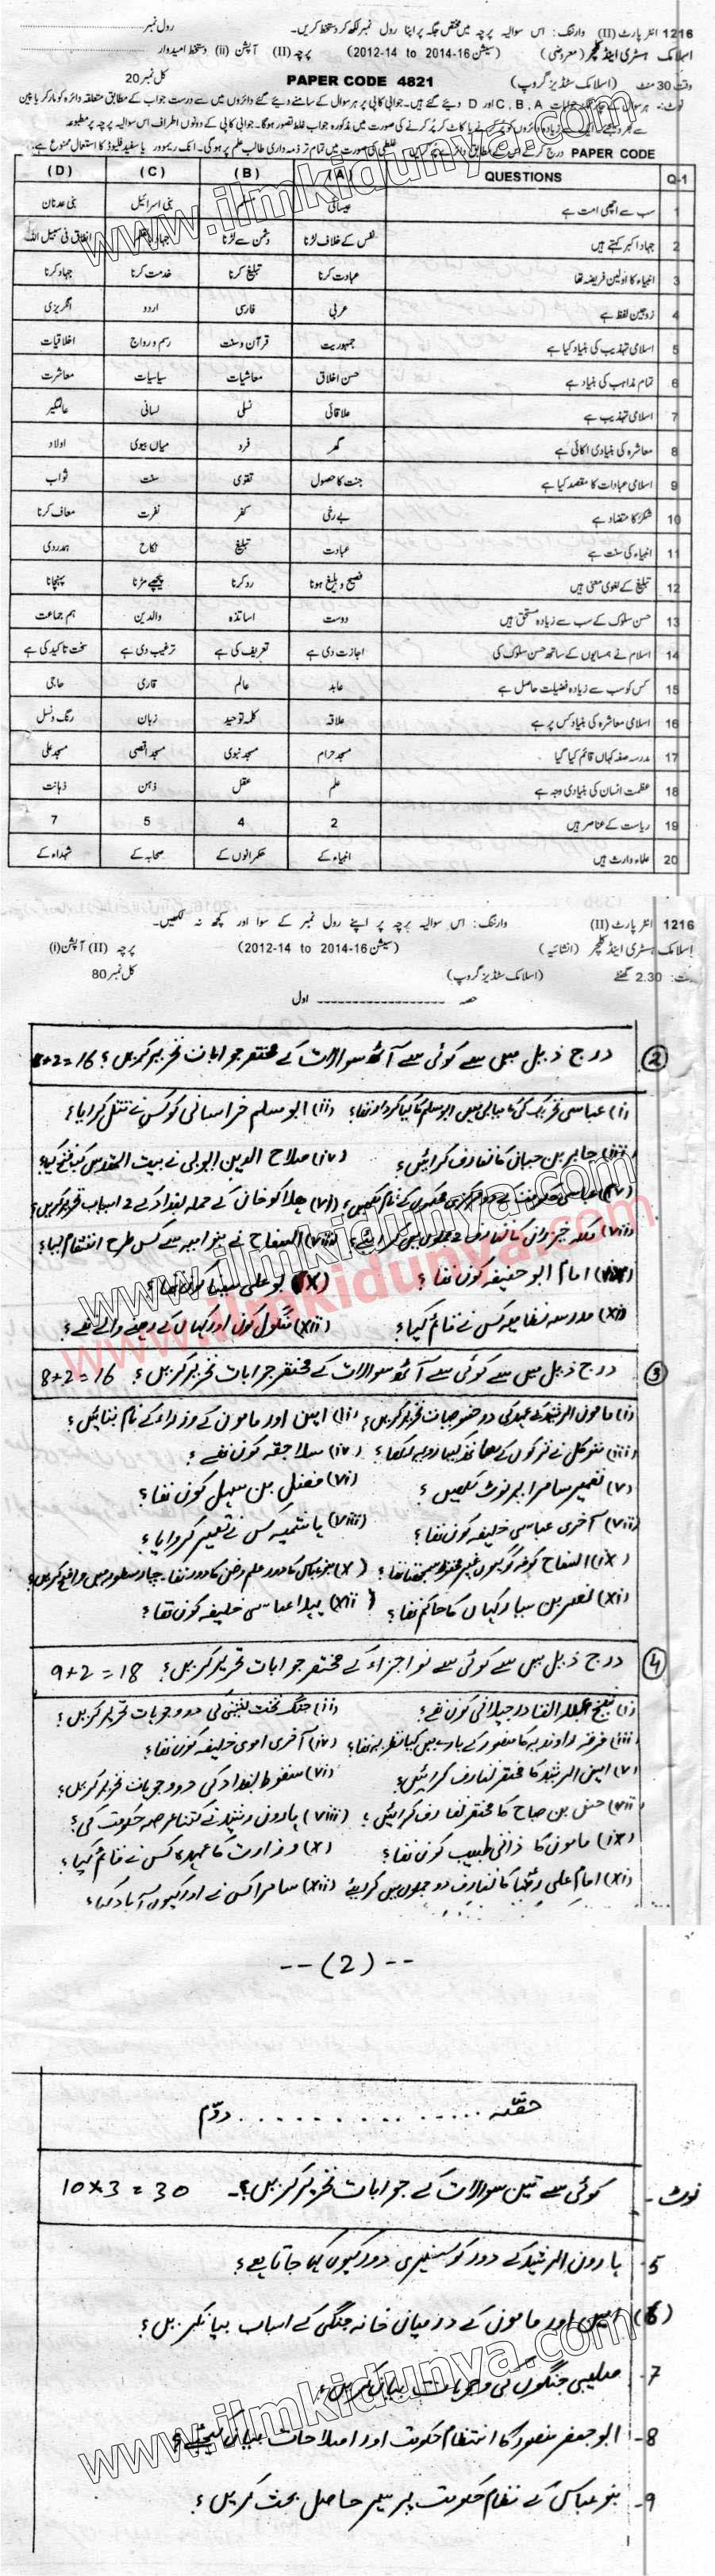 1216 انٹر پارٹ (II) وارننگ: اس سوالیہ پرچہ میں مختص جگہ پر اپنا رول نمبر لکھ کر دستخط کریں۔ رول نمبر
اسلامک ہسٹری اینڈ کلچر (معروضی) (سیشن 2012-14 to 2014-16) پرچہ (II) آپشن (ii) دستخط امیدوار
وقت 30 منٹ (اسلامک سٹڈیز گروپ) PAPER CODE 4821 کل نمبر 20
PAPER CODE
Q-1 QUESTIONS (A) (B) (C) (D)
1 سب سے اچھی امت ہے عیسائی مسلم بنی اسرائیل بنی عدنان
2 جہاد اکبر کہتے ہیں نفس کے خلاف لڑنا دشمن سے لڑنا انفاق فی سبیل اللہ
3 انبیاء کا اولین فریضہ تھا عبادت کرنا تبلیغ کرنا خدمت کرنا جہاد کرنا
4 زوجین لفظ ہے عربی فارسی اردو انگریزی
5 اسلامی تہذیب کی بنیاد کیا ہے جمہوریت قرآن و سنت رسم و رواج اخلاقیات
6 تمام مذاہب کی بنیاد ہے حسن اخلاق معاشیات سیاسیات معاشرت
7 اسلامی تہذیب ہے علاقائی نسلی لسانی عالمگیر
8 معاشرہ کی بنیادی اکائی ہے گھر فرد میاں بیوی اولاد
9 اسلامی عبادات کا مقصد کیا ہے جنت کا حصول تقویٰ سنت ثواب
10 شکر کا متضاد ہے بے رخی کفر نفرت معاف کرنا
11 انبیاء کی سنت ہے عبادت تبلیغ نکاح ہمدردی
12 تبلیغ کے لغوی معنی ہیں فصیح و بلیغ ہونا رد کرنا پیچھے مڑنا پہنچانا
13 حسن سلوک کے سب سے زیادہ مستحق ہیں دوست اساتذہ والدین ہم جماعت
14 اسلام نے ہمسایوں کے ساتھ حسن سلوک کی اجازت دی ہے تعریف کی ہے ترغیب دی ہے سخت تاکید کی ہے
15 کس کو سب سے زیادہ فضیلت حاصل ہے عابد عالم قاری حاجی
16 اسلامی معاشرہ کی بنیاد کس پر ہے علاقہ کلمہ توحید زبان رنگ و نسل
17 مدرسہ صفہ کہاں قائم کیا گیا مسجد حرام مسجد نبوی مسجد اقصیٰ مسجد علی
18 عظمت انسان کی بنیادی وجہ ہے علم عقل ذہن ذہانت
19 ریاست کے عناصر ہیں 2 4 5 7
20 علماء وارث ہیں انبیاء کے حکمرانوں کے صحابہ کے شہداء کے
1216 انٹر پارٹ (II) وارننگ: اس سوالیہ پرچہ پر اپنے رول نمبر کے سوا اور کچھ نہ لکھیں۔
اسلامک ہسٹری اینڈ کلچر (انشائیہ) (سیشن 2012-14 to 2014-16) پرچہ (II) آپشن (i)
وقت: 2.30 گھنٹے (اسلامک سٹڈیز گروپ) کل نمبر 80
حصہ ---------- اول
(2) درج ذیل میں سے کوئی سے آٹھ سوالات کے مختصر جوابات تحریر کریں؟ 8+2=16
(i) عباسی تحریک کی کامیابی میں ابو مسلم کا کیا کردار تھا؟ (ii) ابو مسلم خراسانی کو کس نے قتل کرایا؟
(iii) جابر بن حیان کا تعارف کرائیں؟ (iv) صلاح الدین ایوبی نے بیت المقدس کب فتح کیا؟
(v) عباسی حکومت کے دو مرکزی محکموں کے نام لکھیں؟ (vi) ہلاکو خان کے حملہ بغداد کے 2 اسباب تحریر کریں؟
(vii) ملکہ خیزران کا تعارف 2 جملوں میں کرائیے؟ (viii) السفاح نے بنو امیہ سے کس طرح انتقام لیا؟
(ix) امام ابو حنیفہ کون تھا؟ (x) بو علی سینا کون تھا؟
(xi) مدرسہ نظامیہ کس نے قائم کیا؟ (xii) منگول کون اور کہاں کے رہنے والے تھے؟
(3) درج ذیل میں سے کوئی سے آٹھ سوالات کے مختصر جوابات تحریر کریں؟ 8+2=16
(i) مامون الرشید کے عہد کی دو خصوصیات تحریر کریں؟ (ii) امین اور مامون کے وزراء کے نام بتائیں؟
(iii) متوکل نے ترکوں کے ساتھ کیسا رویہ رکھا؟ (iv) سلاجقہ کون تھے؟
(v) تعمیر سامرا پر نوٹ لکھیں؟ (vi) فضل بن سہل کون تھا؟
(vii) آخری عباسی خلیفہ کون تھا؟ (viii) ہاشمیہ کس نے تعمیر کروایا؟
(ix) السفاح کوفہ کو کیوں غیر محفوظ سمجھتا تھا؟ (x) بنو عباس کا دور علم و فن کا دور تھا۔ چار سطور میں واضح کریں؟
(xi) نصر بن سیار کہاں کا حاکم تھا؟ (xii) پہلا عباسی خلیفہ کون تھا؟
(4) درج ذیل میں سے کوئی سے نو اجزاء کے مختصر جوابات تحریر کریں؟ 9+2=18
(i) شیخ عبدالقادر جیلانی کون تھے؟ (ii) جنگ تخت نشینی کی دو وجوہات تحریر کریں؟
(iii) فرقہ راوندیہ کا منصور کے بارے میں کیا نظریہ تھا؟ (iv) آخری اموی خلیفہ کون تھا؟
(v) امین الرشید کا مختصر تعارف کرائیں؟ (vi) سقوط بغداد کی دو وجوہات تحریر کریں؟
(vii) حسن بن صباح کا مختصر تعارف کرائیں؟ (viii) ہارون رشید نے کتنا عرصہ حکومت کی؟
(ix) مامون کا ذاتی طبیب کون تھا؟ (x) وزارت کا عہدہ کس نے قائم کیا؟
(xi) امام علی رضا کا تعارف دو جملوں میں کرائیے (xii) سامرا کس نے اور کیوں آباد کیا؟
--(2)--
حصّہ .............. دوّم
نوٹ۔ کوئی سے تین سوالات کے جوابات تحریر کریں؟۔ 10×3=30
5- ہارون الرشید کے دور کو سنہری دور کیوں کہا جاتا ہے؟
(6) امین اور مامون کے درمیان خانہ جنگی کے اسباب بیان کریں؟
7- صلیبی جنگوں کی وجوہات بیان کریں؟
8- ابو جعفر منصور کا انتظام حکومت اور اصلاحات بیان کیجئے؟
9- بنو عباس کے نظام حکومت پر سیر حاصل بحث کریں؟
www.ilmkidunya.com